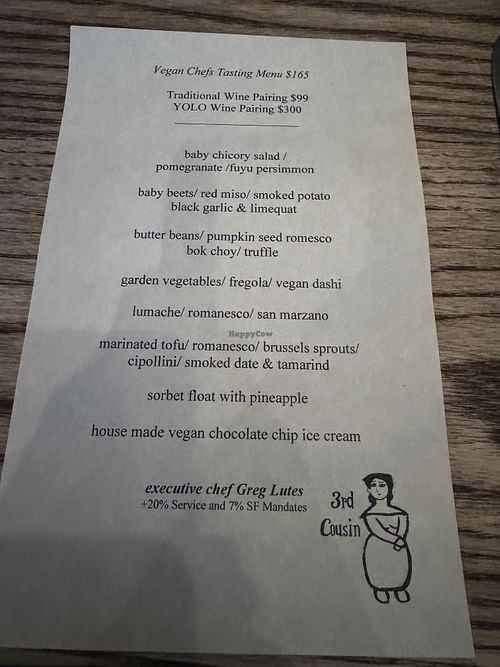 Vegan Chefs Tasting Menu $165
Traditional Wine Pairing $99
YOLO Wine Pairing $300
baby chicory salad /
pomegranate /fuyu persimmon
baby beets/ red miso/ smoked potato
black garlic & limequat
butter beans/ pumpkin seed romesco
bok choy/ truffle
garden vegetables/ fregola/ vegan dashi
lumache/ romanesco/ san marzano
HappyCow
marinated tofu/ romanesco/ brussels sprouts/
cipollini/ smoked date & tamarind
sorbet float with pineapple
house made vegan chocolate chip ice cream
executive chef Greg Lutes
+20% Service and 7% SF Mandates
3rd
Cousin